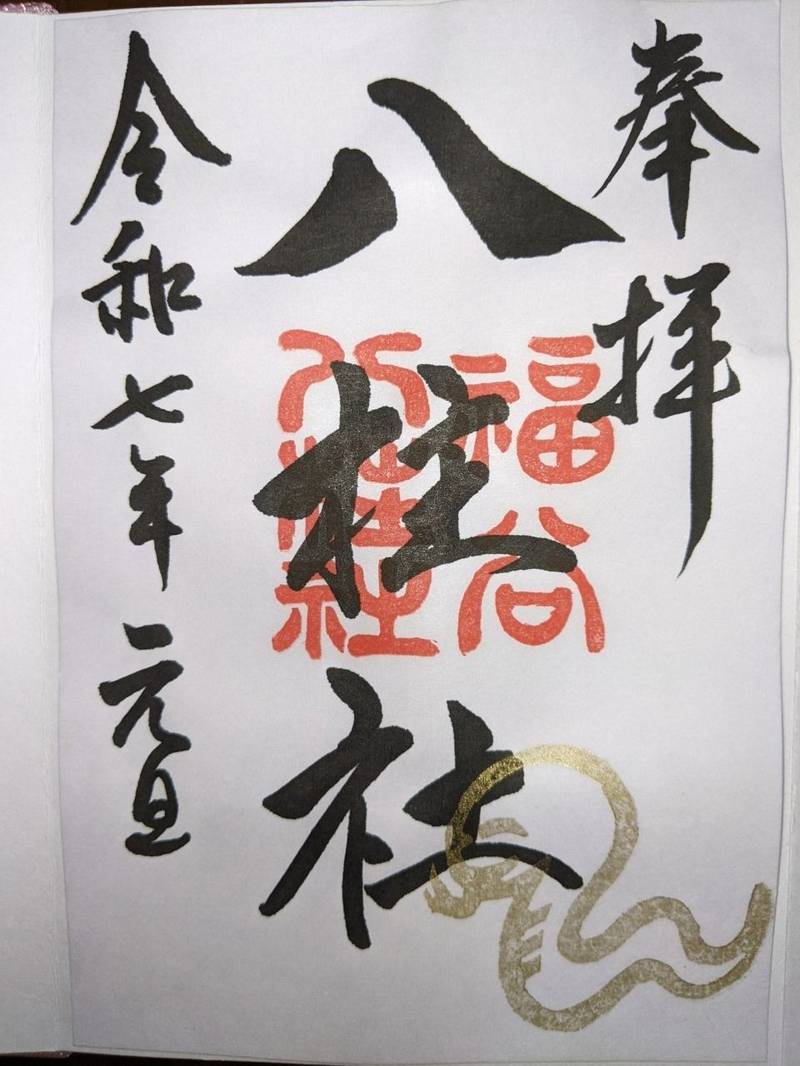 奉拝
八柱社
福谷
八柱社
令和七年元旦